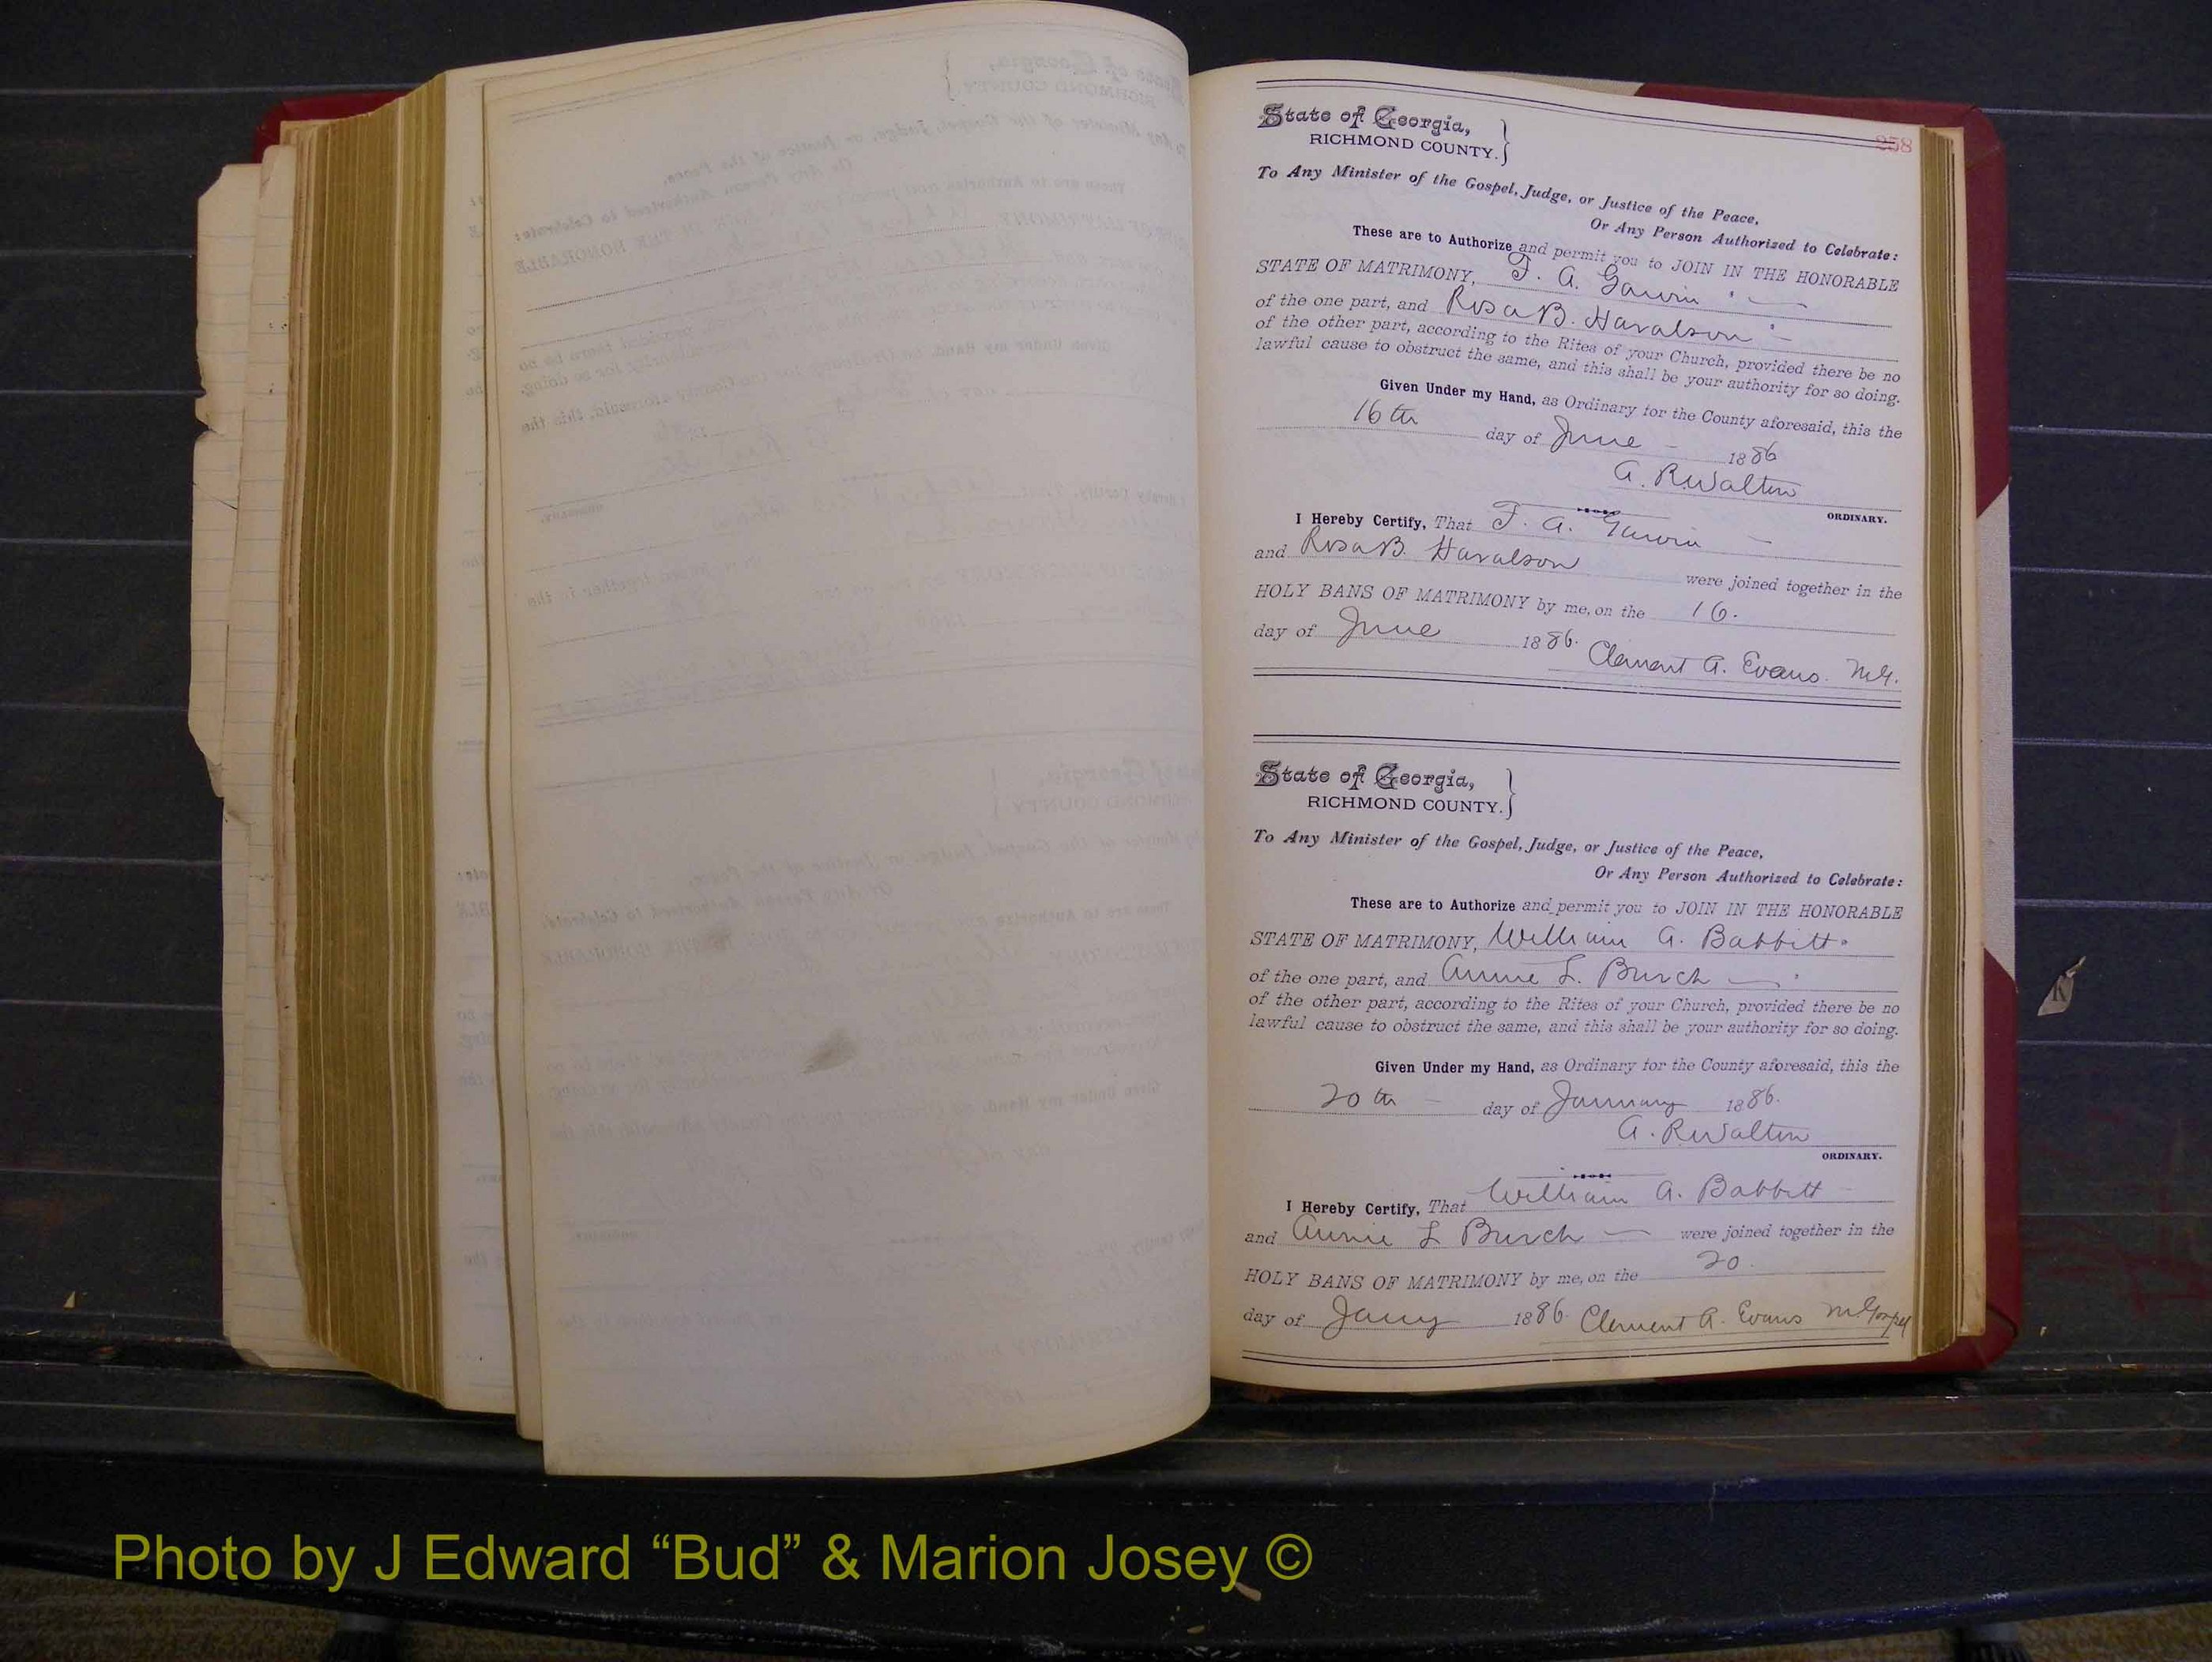 258
State of Georgia,
RICHMOND COUNTY. }
To Any Minister of the Gospel, Judge, or Justice of the Peace,
Or Any Person Authorized to Celebrate:
These are to Authorize and permit you to JOIN IN THE HONORABLE
STATE OF MATRIMONY, F. A. Gawin
of the one part, and Rosa B. Haralson
of the other part, according to the Rites of your Church, provided there be no
lawful cause to obstruct the same, and this shall be your authority for so doing.
Given Under my Hand, as Ordinary for the County aforesaid, this the
16th day of June 1886
A. R. Walton
ORDINARY.
I Hereby Certify, That F. A. Gawin
and Rosa B. Haralson were joined together in the
HOLY BANS OF MATRIMONY by me, on the 16.
day of June 1886. Clement A. Evans. M.G.
State of Georgia,
RICHMOND COUNTY. }
To Any Minister of the Gospel, Judge, or Justice of the Peace,
Or Any Person Authorized to Celebrate:
These are to Authorize and permit you to JOIN IN THE HONORABLE
STATE OF MATRIMONY, William A. Babbitt
of the one part, and Annie L. Burch
of the other part, according to the Rites of your Church, provided there be no
lawful cause to obstruct the same, and this shall be your authority for so doing.
Given Under my Hand, as Ordinary for the County aforesaid, this the
20th day of January 1886.
A. R. Walton
ORDINARY.
I Hereby Certify, That William A. Babbitt
and Annie L Burch were joined together in the
HOLY BANS OF MATRIMONY by me, on the 20.
day of Jany 1886. Clement A. Evans M. Gospel
Photo by J Edward “Bud” & Marion Josey ©